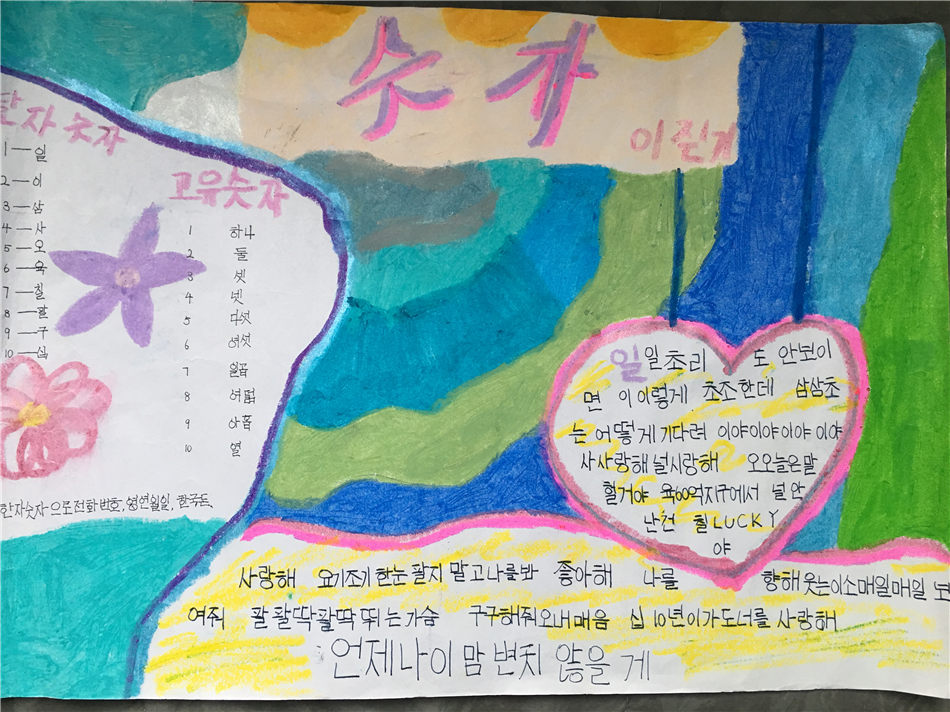 숫자
이쥔게
한자 숫자
1 — 일
2 — 이
3 — 삼
4 — 사
5 — 오
6 — 육
7 — 칠
8 — 팔
9 — 구
10 — 십
고유숫자
1 하나
2 둘
3 셋
4 넷
5 다섯
6 여섯
7 일곱
8 여덟
9 아홉
10 열
한자숫자으로 전화 번호, 생연월일, 한국돈
일 일초리 도 안보이
면 이 이렇게 초조한데 삼삼초
는 어떻게 기다려 이야이야이야이야
사사랑해 널사랑해 오오늘은말
할거야 육60억지구에서 널 만
난건 칠 LUCKY
야
사랑해 요기조기한눈팔지 말고나를봐 좋아해 나를 향해 웃는미소매일매일 보
여줘 팔 팔딱팔딱 뛰는가슴 구구해줘오내마음 십10년이가도너를 사랑해
언제나이 맘 변치 않을 게